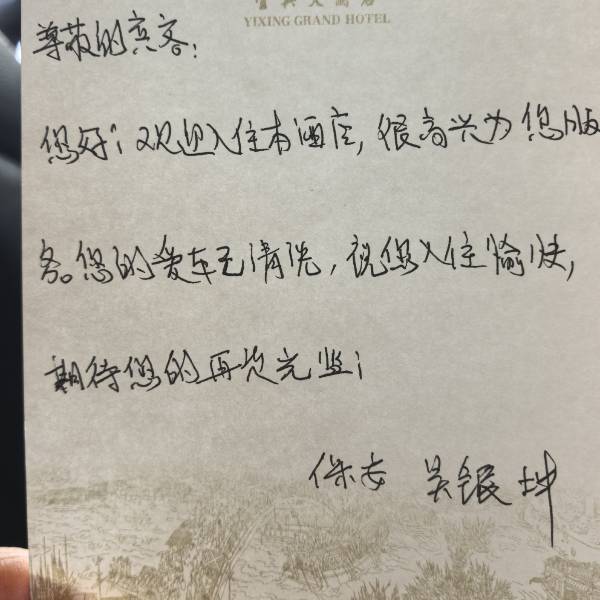 宜兴大酒店
YIXING GRAND HOTEL
尊敬的宾客:
您好!欢迎入住本酒店,很高兴为您服
务。您的爱车已清洗,祝您入住愉快,
期待您的再次光临!
保安 吴银坤